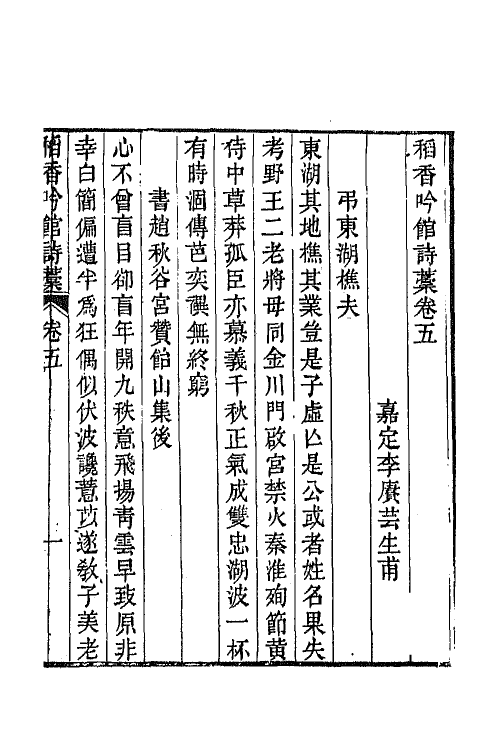 稻香吟館詩藁卷五
嘉定李賡芸生甫
弔東湖樵夫
東湖其地樵其業豈是子虛亾是公或者姓名果失
考野王二老將毋同金川門啟宮禁火秦淮殉節黃
侍中草莽孤臣亦慕義千秋正氣成雙忠湖波一杯
有時涸傳芭奕禩無終窮
書趙秋谷宮贊飴山集後
心不曾盲目卻盲年開九秩意飛揚靑雲早致原非
幸白簡偏遭半爲狂偶似伏波讒薏苡遂敎子美老
稻香吟館詩藁 卷五 一